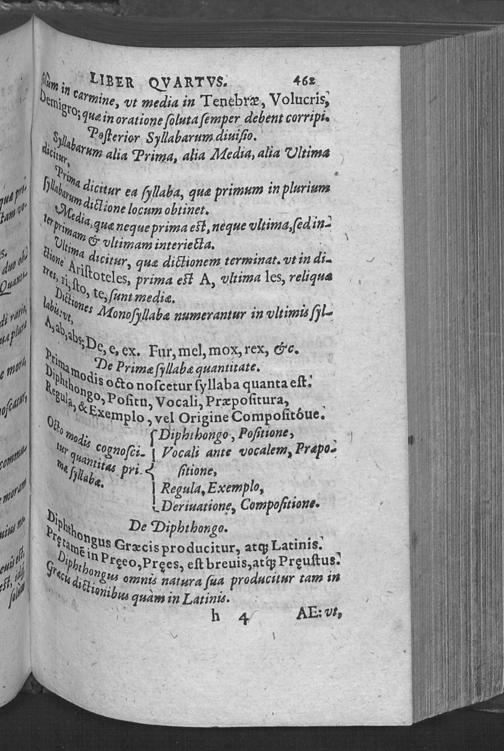 LIBER QVARTVS. 462
ſũm in carmine, vt media in Tenebræ, Volucris,
Demigro; quæ in oratione ſoluta ſemper debent corripi.
Poſterior Syllabarum diuiſio.
Syllabarum alia Prima, alia Media, alia Vltima
dicitur.
Prima dicitur ea ſyllaba, quæ primum in plurium
ſyllabarum dictione locum obtinet.
Media, quæ neque prima eſt, neque vltima, ſed in-
ter primam & vltimam interiecta.
Vltima dicitur, quæ dictionem terminat. vt in di-
ctione Ariſtoteles, prima eſt A, vltima les, reliquæ
tres, ri, ſto, te, ſunt mediæ.
Dictiones Monoſyllabæ numerantur in vltimis ſyl-
labis: vt,
A, ab, abs; De, e, ex. Fur, mel, mox, rex, &c.
De Primæ ſyllabæ quantitate.
Prima modis octo noſcetur ſyllaba quanta eſt:
Diphthongo, Poſitu, Vocali, Præpoſitura,
Regula, & Exemplo, vel Origine Compoſitóue.
Octo modis cognoſci-
tur quantitas pri-
mæ ſyllabæ.
Diphthongo, Poſitione,
Vocali ante vocalem, Præpo-
ſitione,
Regula, Exemplo,
Deriuatione, Compoſitione.
De Diphthongo.
Diphthongus Græcis producitur, atq; Latinis:
Prętamē in Pręeo, Pręes, eſt breuis, atq; Pręuſtus.
Diphthongus omnis natura ſua producitur tam in
Græcis dictionibus quàm in Latinis.
h 4 AE: vt,